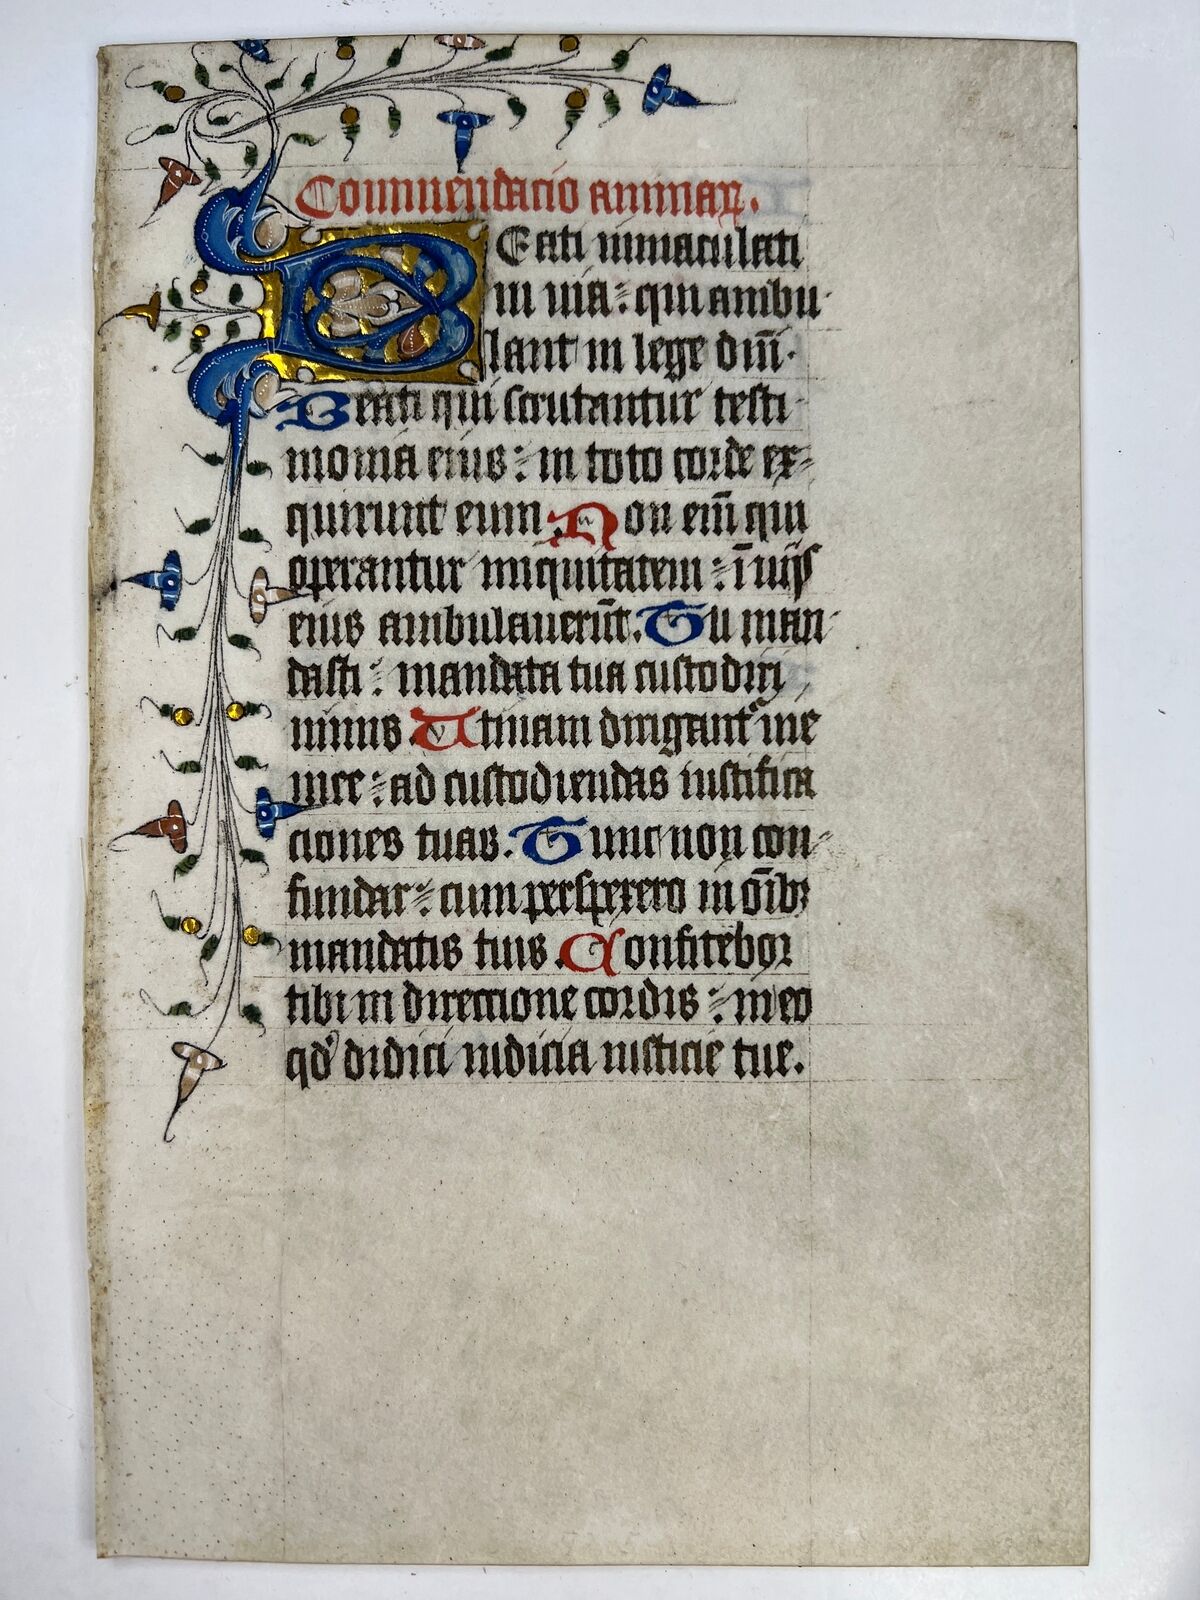 Commendacio animaꝝ.
Beati immaculati
in uia: qui ambu-
lant in lege dn̄i.
Beati qui scrutantur testi-
monia eius: in toto corde ex-
quirunt eum. Non eni᷑ qui
operantur iniquitatem: ī uijs
eius ambulauerūt. Tu man-
dasti: mandata tua custodiri
nimis. Utinam dirigantᷣ uie
mee: ad custodiendas iustifica
ciones tuas. Tunc non con-
fundar: cum perspexero in om̄ibꝫ
mandatis tuis. Confitebor
tibi in direccione cordis: in eo
qd̓ didici iudicia iusticie tue.